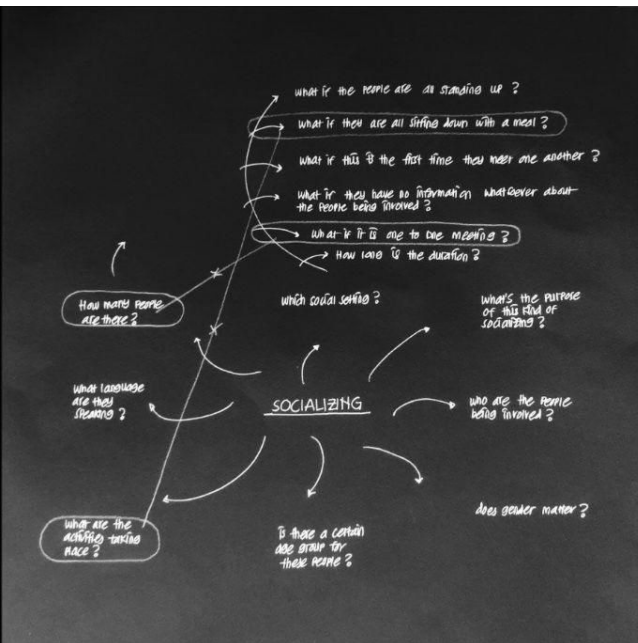 what if the people are all standing up ?
what if they are all sitting down with a meal ?
what if this is the first time they meet one another ?
what if they have no information whatsoever about
the people being involved ?
What if it is one to one meeting ?
How long is the duration ?
which social setting ?
what's the purpose
of this kind of
socializing ?
How many people
are there ?
What language
are they
speaking ?
SOCIALIZING
who are the people
being involved ?
does gender matter ?
what are the
activities taking
place ?
is there a certain
age group for
these people ?